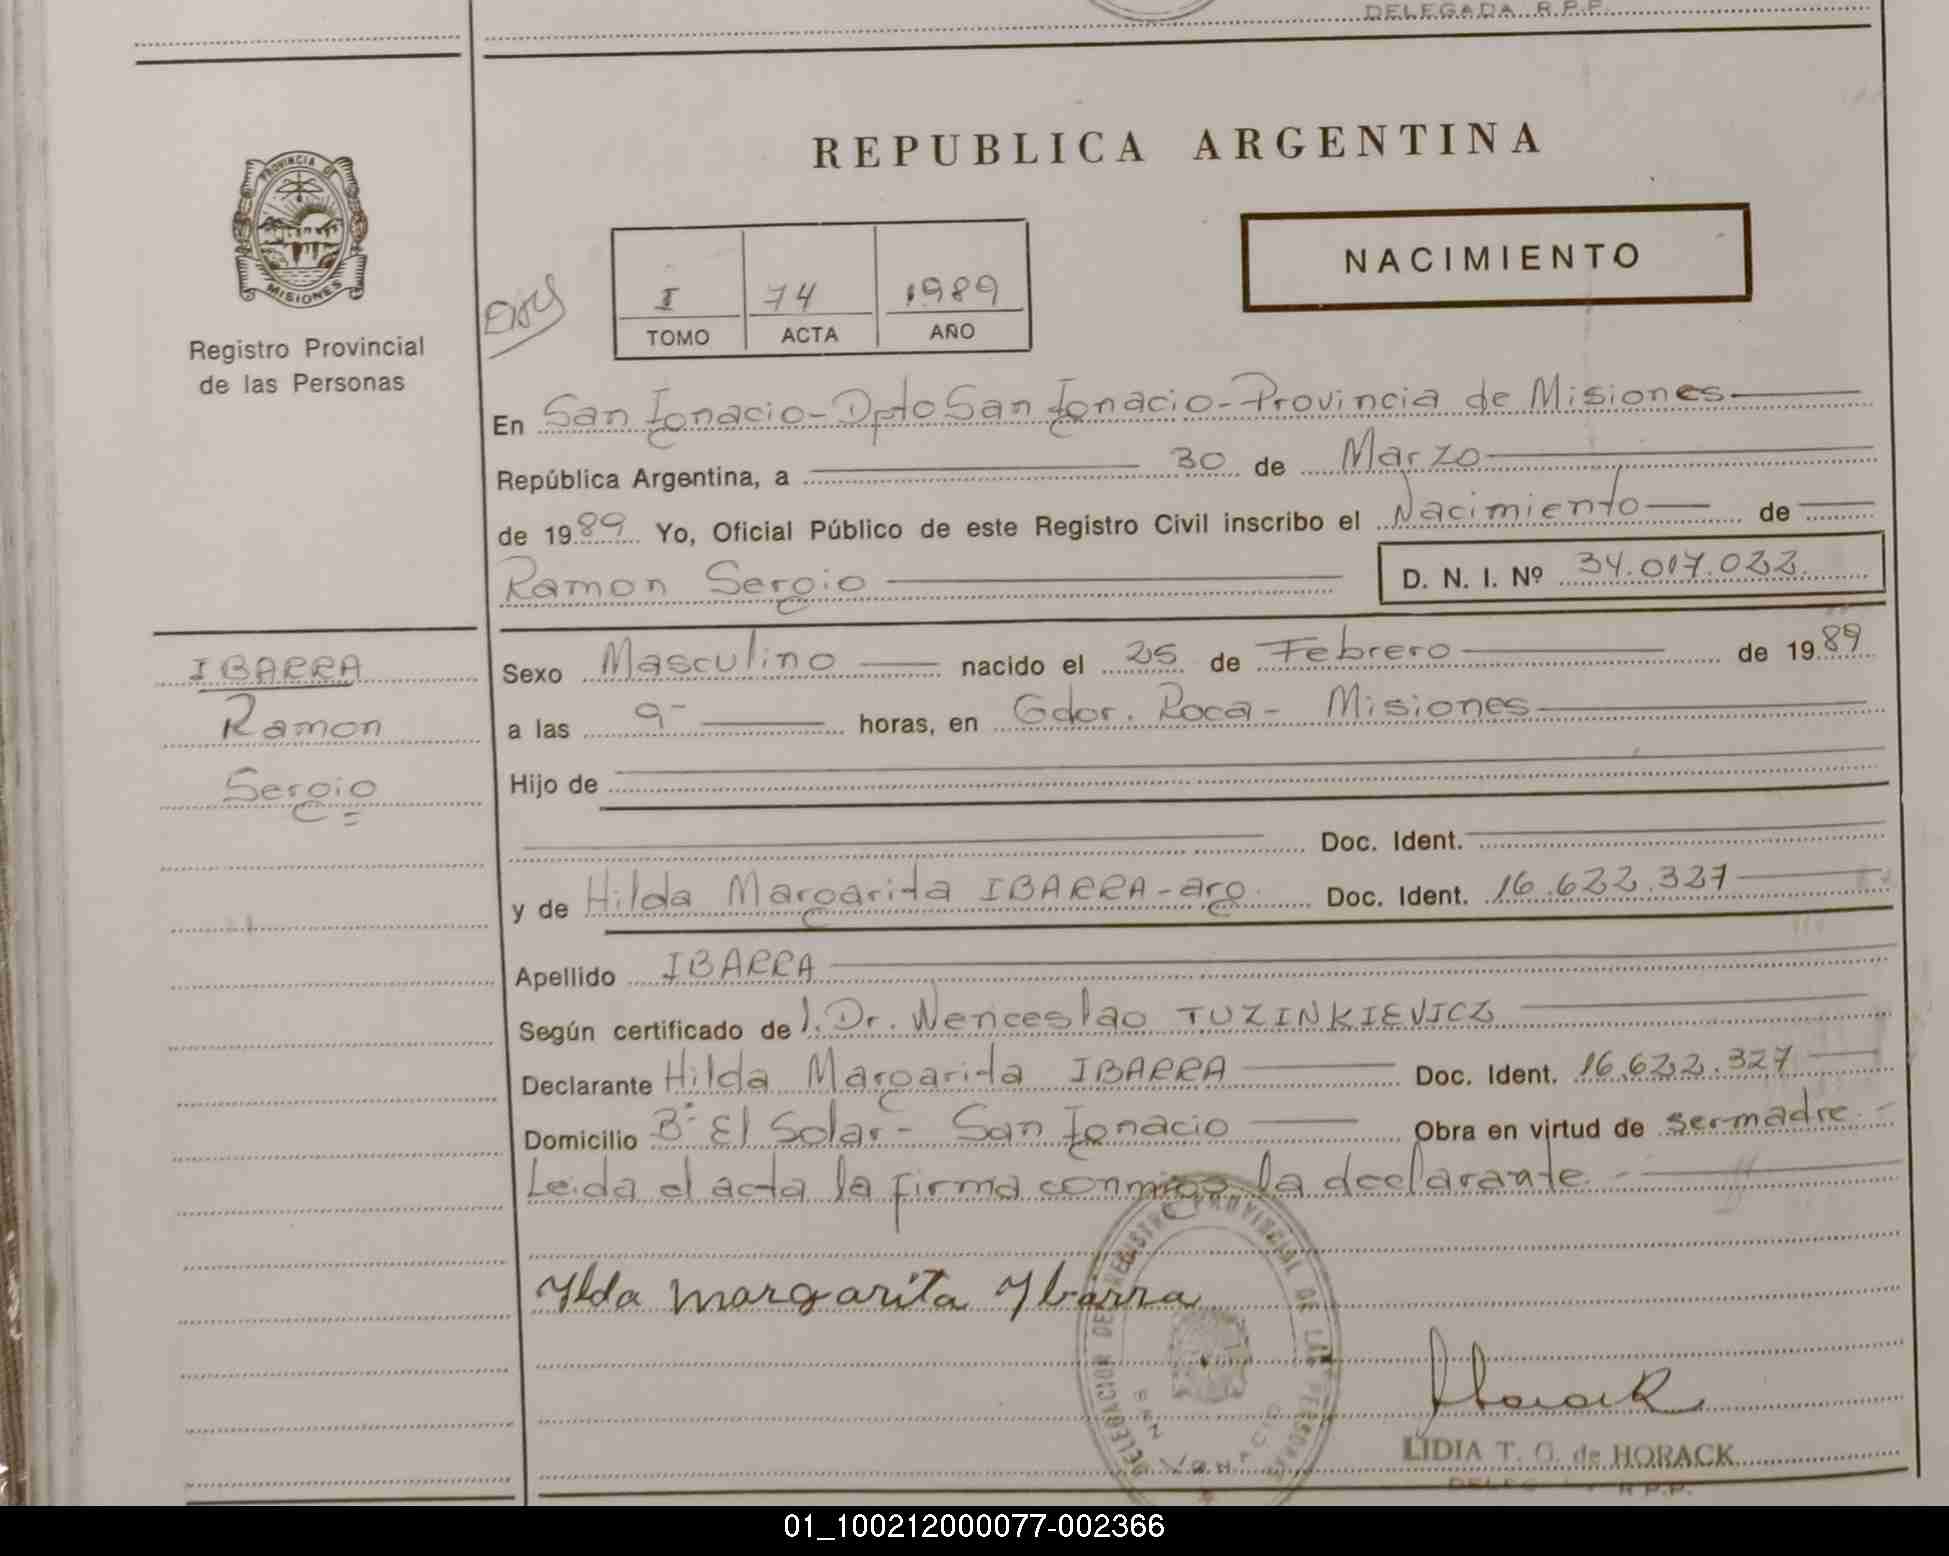 DELEGADA R.P.P.
REPUBLICA ARGENTINA
PROVINCIA DE
MISIONES
Registro Provincial
de las Personas
I 74 1989
TOMO ACTA AÑO
NACIMIENTO
En San Ignacio - Dpto San Ignacio - Provincia de Misiones
República Argentina, a 30 de Marzo
de 1989 Yo, Oficial Público de este Registro Civil inscribo el Nacimiento de
Ramon Sergio D. N. I. Nº 34.017.022.
IBARRA
Ramon
Sergio
Sexo Masculino nacido el 25 de Febrero de 1989
a las 9- horas, en Gdor. Roca - Misiones
Hijo de
Doc. Ident.
y de Hilda Margarita IBARRA - arg. Doc. Ident. 16.622.327
Apellido IBARRA
Según certificado de l. Dr. Wenceslao TUZINKIEVICZ
Declarante Hilda Margarita IBARRA Doc. Ident. 16.622.327
Domicilio Bº El Solar - San Ignacio Obra en virtud de ser madre.-
Leida el acta la firma conmigo la declarante.-
Ylda Margarita Ybarra
DELEGACION DE REGISTRO PROVINCIAL DE LAS PERSONAS
SAN IGNACIO
Horack
LIDIA T. G. de HORACK
R.P.P.
01_100212000077-002366